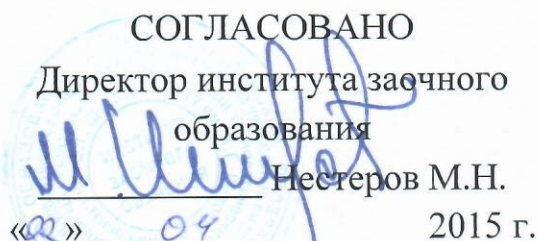 СОГЛАСОВАНО
Директор института заочного
образования
Нестеров М.Н.
«02» 04 2015 г.